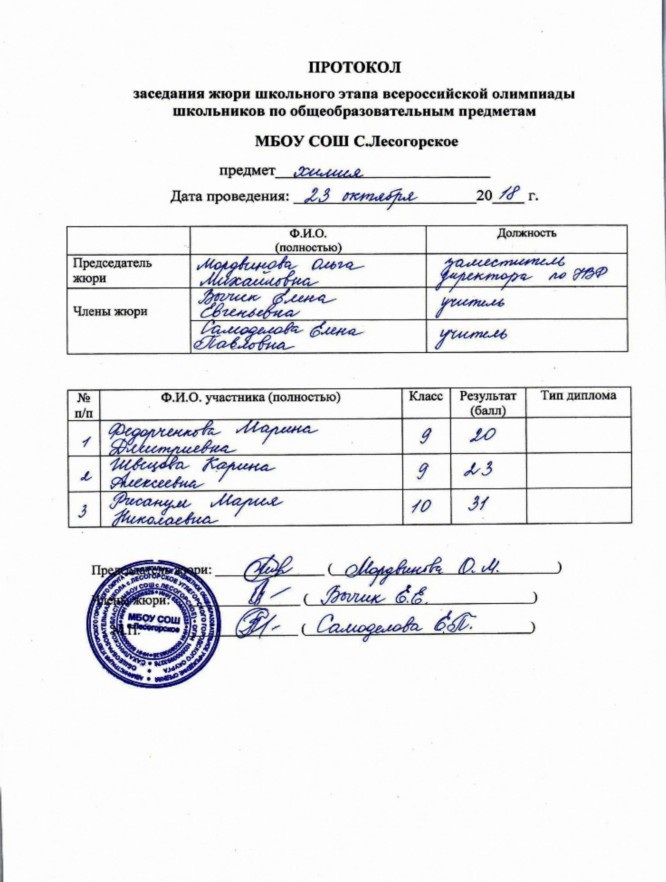 ПРОТОКОЛ
заседания жюри школьного этапа всероссийской олимпиады
школьников по общеобразовательным предметам
МБОУ СОШ С.Лесогорское
предмет химия
Дата проведения: 23 октября 2018 г.
Ф.И.О. (полностью) Должность
Председатель жюри Мордвинова Ольга Михайловна заместитель директора по
Члены жюри Вычик Елена Евгеньевна учитель
Самоделова Елена Павловна учитель
№ п/п Ф.И.О. участника (полностью) Класс Результат (балл) Тип диплома
1 Федорченкова Марина Дмитриевна 9 20
2 Швецова Карина Алексеевна 9 23
3 Мария Николаевна 10 31
Председатель жюри: ( Мордвинова О.М. )
Члены жюри: ( Вычик Е.Е. )
М.П. ( Самоделова Е.П. )
МБОУ СОШ
с.Лесогорское